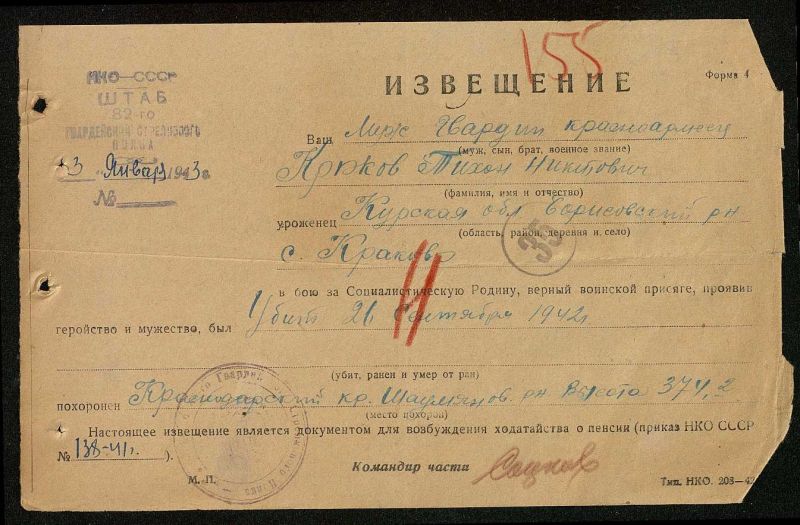 155
НКО—СССР
ШТАБ
82-го
ГВАРДЕЙСКОГО СТРЕЛКОВОГО
ПОЛКА
3 Январ 1943 г.
№
ИЗВЕЩЕНИЕ
Форма 4
Ваш муж Гвардии красноармеец
(муж, сын, брат, военное звание)
Крюков Тихон Никитович
(фамилия, имя и отчество)
уроженец Курская обл Борисовский рн
(область, район, деревня и село)
с. Краково
35
в бою за Социалистическую Родину, верный воинской присяге, проявив
геройство и мужество, был Убит 26 Сентября 1942г
(убит, ранен и умер от ран)
похоронен Краснодарский кр. Шаумянов. рн Высота 374,2
(место похорон)
Настоящее извещение является документом для возбуждения ходатайства о пенсии (приказ НКО СССР
№ 138-41г. ).
Командир части
М. П.
Тип. НКО. 203-42